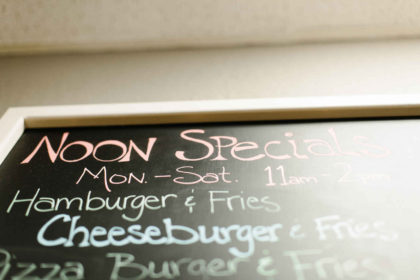 Noon Specials
Mon.-Sat. 11am-2pm
Hamburger & Fries
Cheeseburger & Fries
Pizza Burger & Fries